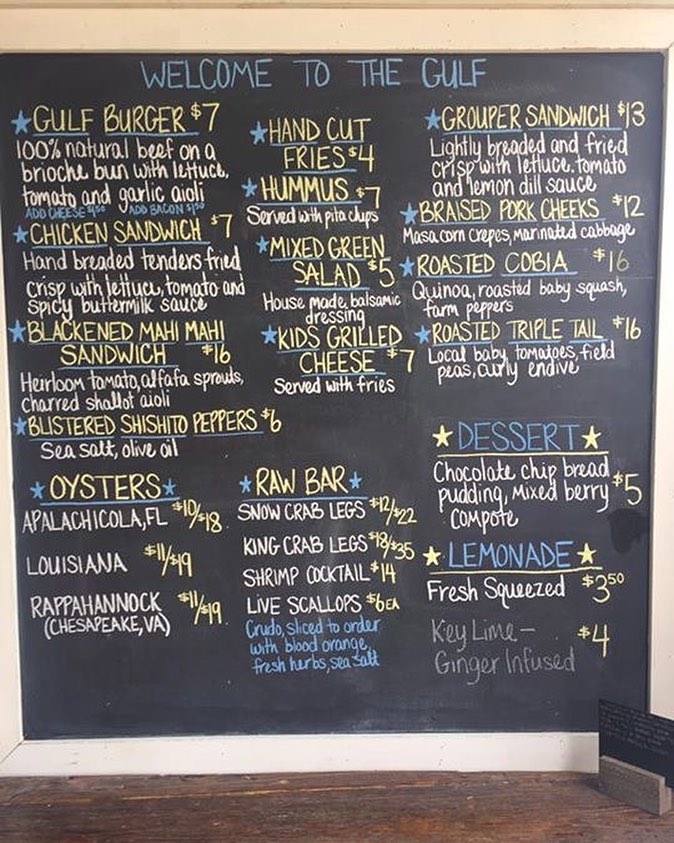 WELCOME TO THE GULF
GULF BURGER $7
100% natural beef on a
brioche bun with lettuce,
tomato and garlic aioli
ADD CHEESE $1.50 ADD BACON $1.50
CHICKEN SANDWICH $7
Hand breaded tenders fried
crisp with lettuce, tomato and
spicy buttermilk sauce
BLACKENED MAHI MAHI
SANDWICH $16
Heirloom tomato, alfafa sprouts,
charred shallot aioli
BLISTERED SHISHITO PEPPERS $6
Sea salt, olive oil
HAND CUT
FRIES $4
HUMMUS $7
Served with pita chips
MIXED GREEN
SALAD $5
House made, balsamic
dressing
KIDS GRILLED
CHEESE $7
Served with fries
GROUPER SANDWICH $13
Lightly breaded and fried
crisp with lettuce, tomato
and lemon dill sauce
BRAISED PORK CHEEKS $12
Masa corn crepes, marinated cabbage
ROASTED COBIA $16
Quinoa, roasted baby squash,
farm peppers
ROASTED TRIPLE TAIL $16
Local baby tomatoes, field
peas, curly endive
OYSTERS
APALACHICOLA, FL $10/$18
LOUISIANA $11/$19
RAPPAHANNOCK $11/$19
(CHESAPEAKE, VA)
RAW BAR
SNOW CRAB LEGS $12/$22
KING CRAB LEGS $18/$35
SHRIMP COCKTAIL $14
LIVE SCALLOPS $6 EA
Crudo, sliced to order
with blood orange,
fresh herbs, sea salt
DESSERT
Chocolate chip bread
pudding, mixed berry $5
compote
LEMONADE
Fresh Squeezed $3.50
Key Lime - $4
Ginger Infused